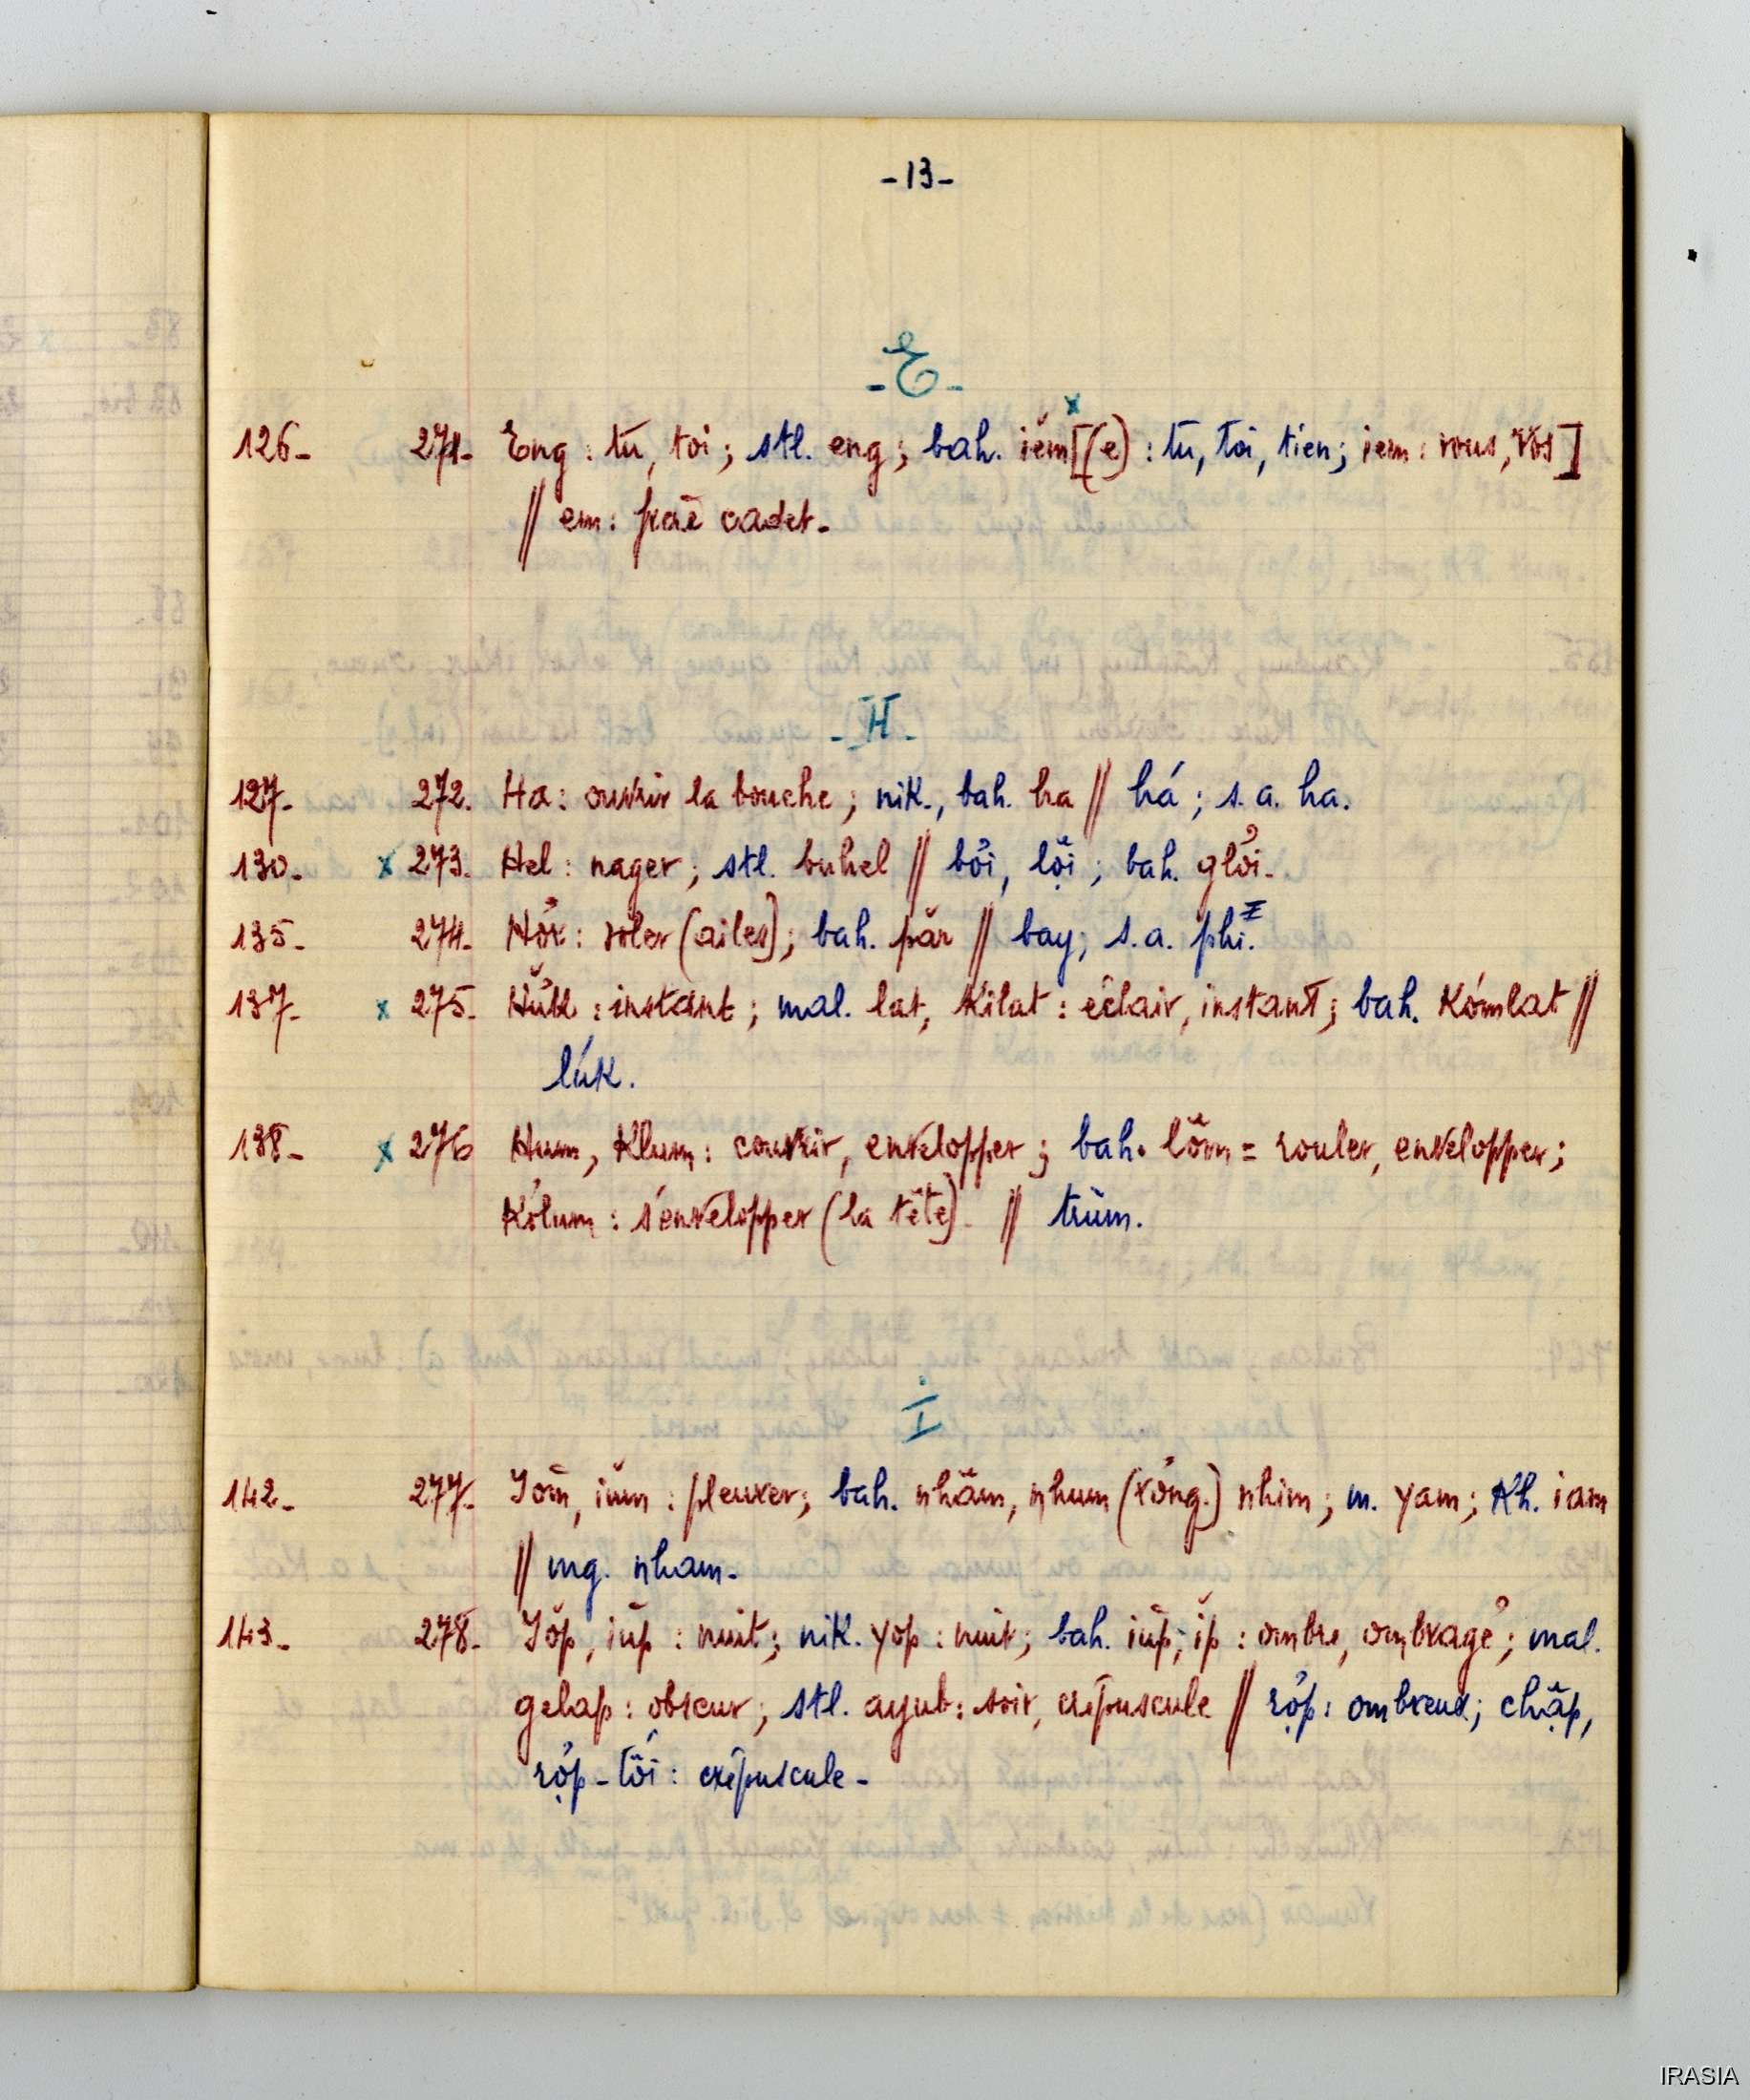 -13-
-E-
126- 271- Eng : tu, toi ; stl. eng ; bah. iĕm [(e) : tu, toi, tien ; iem : vous, vos]
// em : frère cadet-
-H-
127- 272. Ha : ouvrir la bouche ; nik., bah. ha // há ; s. a. ha.
130- x 273. Hel : nager ; stl. buhel // bơi, lội ; bah. glơi-
135- 274- Hơr : voler (ailes) ; bah. păr // bay ; s. a. phi.
137- x 275- : instant ; mal. lat, kilat : éclair, instant ; bah. kómlat //
lúk.
138- x 276 Hum, Klum : couvrir, envelopper ; bah. lŏm = rouler, envelopper ;
Kơlum : s'envelopper (la tête)- // trùm.
I
142- 277- ium : pleurer ; bah. nhăm, nhum (rơng.) nhim ; m. yam ; Kh. iam
// mg. nham-
143- 278- Iŏp, iŭp : nuit ; nik. yop : nuit ; bah. iŭp, ĭp : ombre, ombragé ; mal.
gelap : obscur ; stl. ayub : soir, crépuscule // rợp : ombreux ; chập,
rợp-tối : crépuscule-
IRASIA